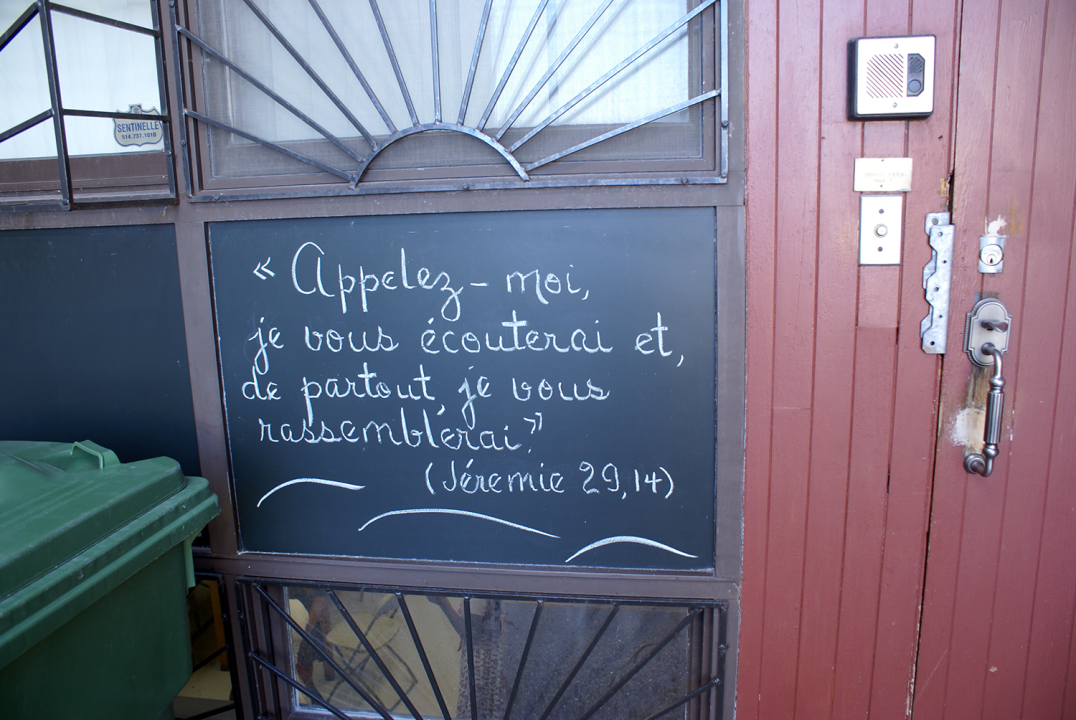 SENTINELLE
514.737.1010
« Appelez-moi,
je vous écouterai et,
de partout, je vous
rassemblerai."
(Jéremie 29,14)